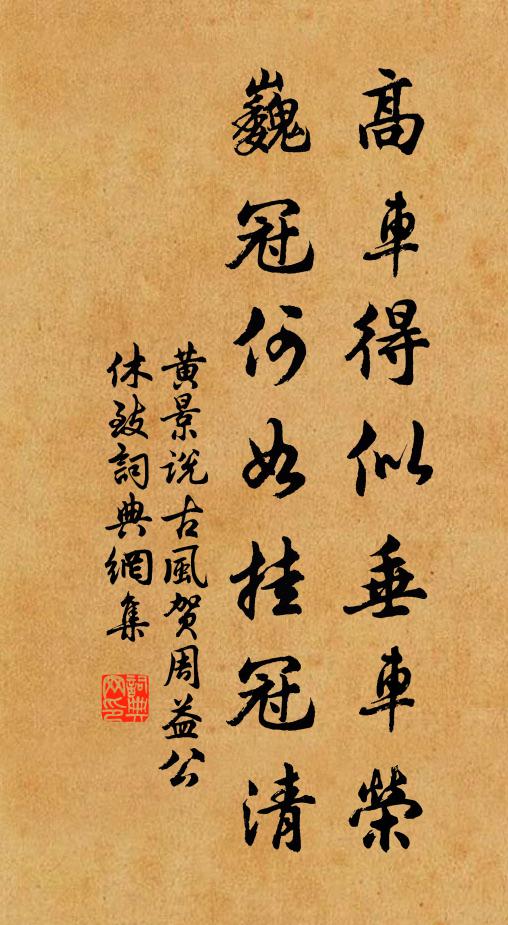 高車得似垂車榮
巍冠何如挂冠清
黄景说古風贺周益公
休致詞典網集
詞典網印